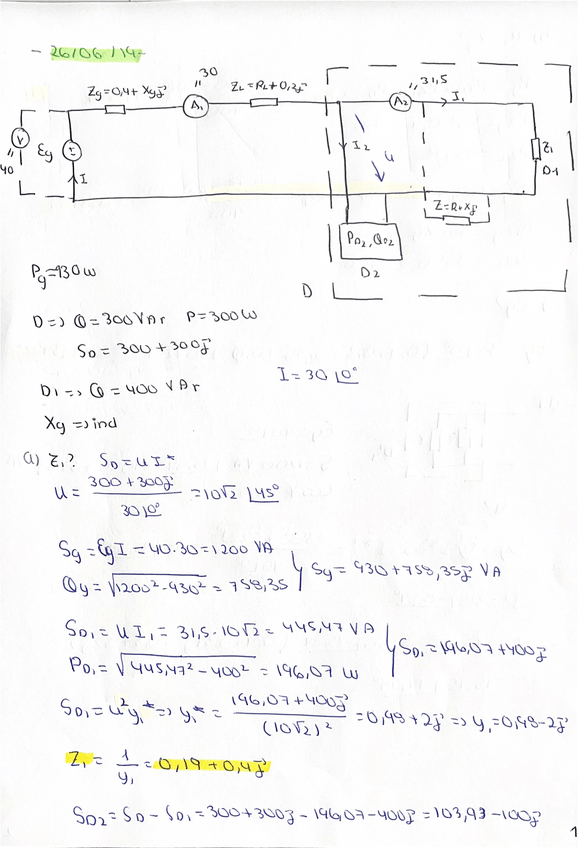 - 26/06/14-
30
31,5
Zg=0,4+Xgj
A1
ZL=RL+0,2j
A2
I1
V
40
Eg
±
I
I2
u
Z1
D1
Z=R+Xj
PD2, QD2
D2
D
Pg=930w
D=> Q=300VAr P=300W
SD=300+300j
I=30∠0°
D1=> Q=400 VAr
Xg=>ind
a) Z1? SD=uI*
u= 300+300j / 30∠0° =10√2 ∠45°
Sg=EgI=40·30=1200 VA
Qg=√1200²-930²=758,35
Sg=930+758,35j VA
SD1=uI1=31,5·10√2=445,47 VA
PD1=√445,47²-400²=196,07 W
SD1=196,07+400j
SD1=u²y1*=>y1*= 196,07+400j / (10√2)² =0,98+2j=>y1=0,98-2j
Z1= 1 / y1 =0,19+0,4j
SD2=SD-SD1=300+300j-196,07-400j=103,93-100j
1